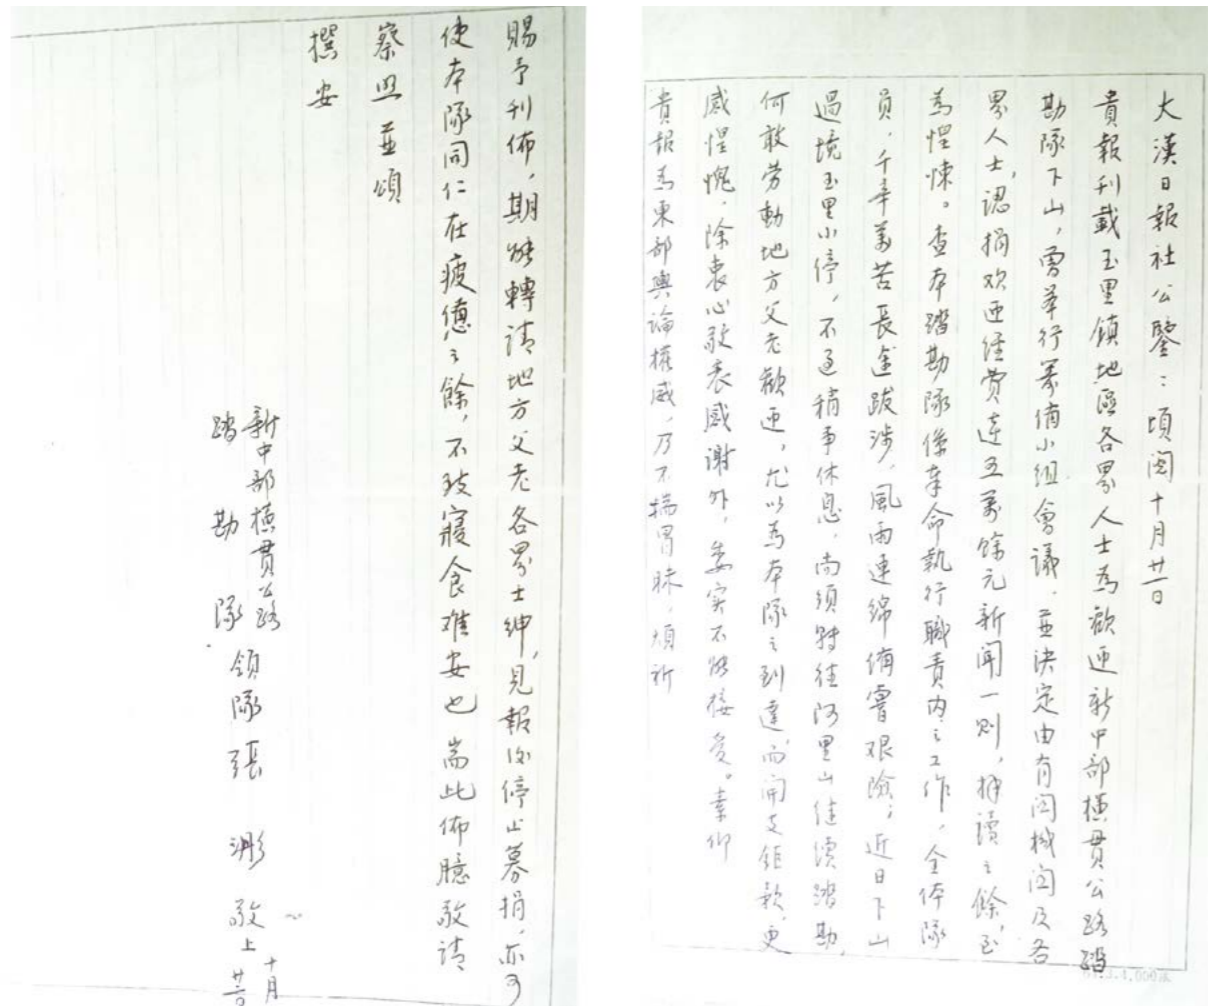 大漢日報社公鑒：頃閱十月廿一日
貴報刊載玉里鎮地區各界人士為歡迎新中部橫貫公路踏
勘隊下山，曾举行籌備小組會議，並決定由有関機関及各
界人士，認捐欢迎经费達五萬餘元新聞一則，捧讀之餘，至
為惶悚。查本踏勘隊係奉命執行職責內之工作，全体隊
員，千辛萬苦長途跋涉，風雨連綿備嘗艰險；近日下山
過境玉里小停，不過稍事休息，尚須转往阿里山继續踏勘，
何敢劳動地方父老歡迎，尤以為本隊之到達，而開支鉅款，更
感惶愧，除衷心敬表感謝外，委实不能接受。素仰
貴報為東部輿論權威，乃不揣冒昧，煩祈
賜予刊佈，期能轉請地方父老各界士紳，見報後停止募捐，亦可
使本隊同仁在疲憊之餘，不致寢食难安也 耑此佈臆敬請
察照並頌
撰安
新中部橫貫公路
踏勘隊 領隊張 敬上 十月廿